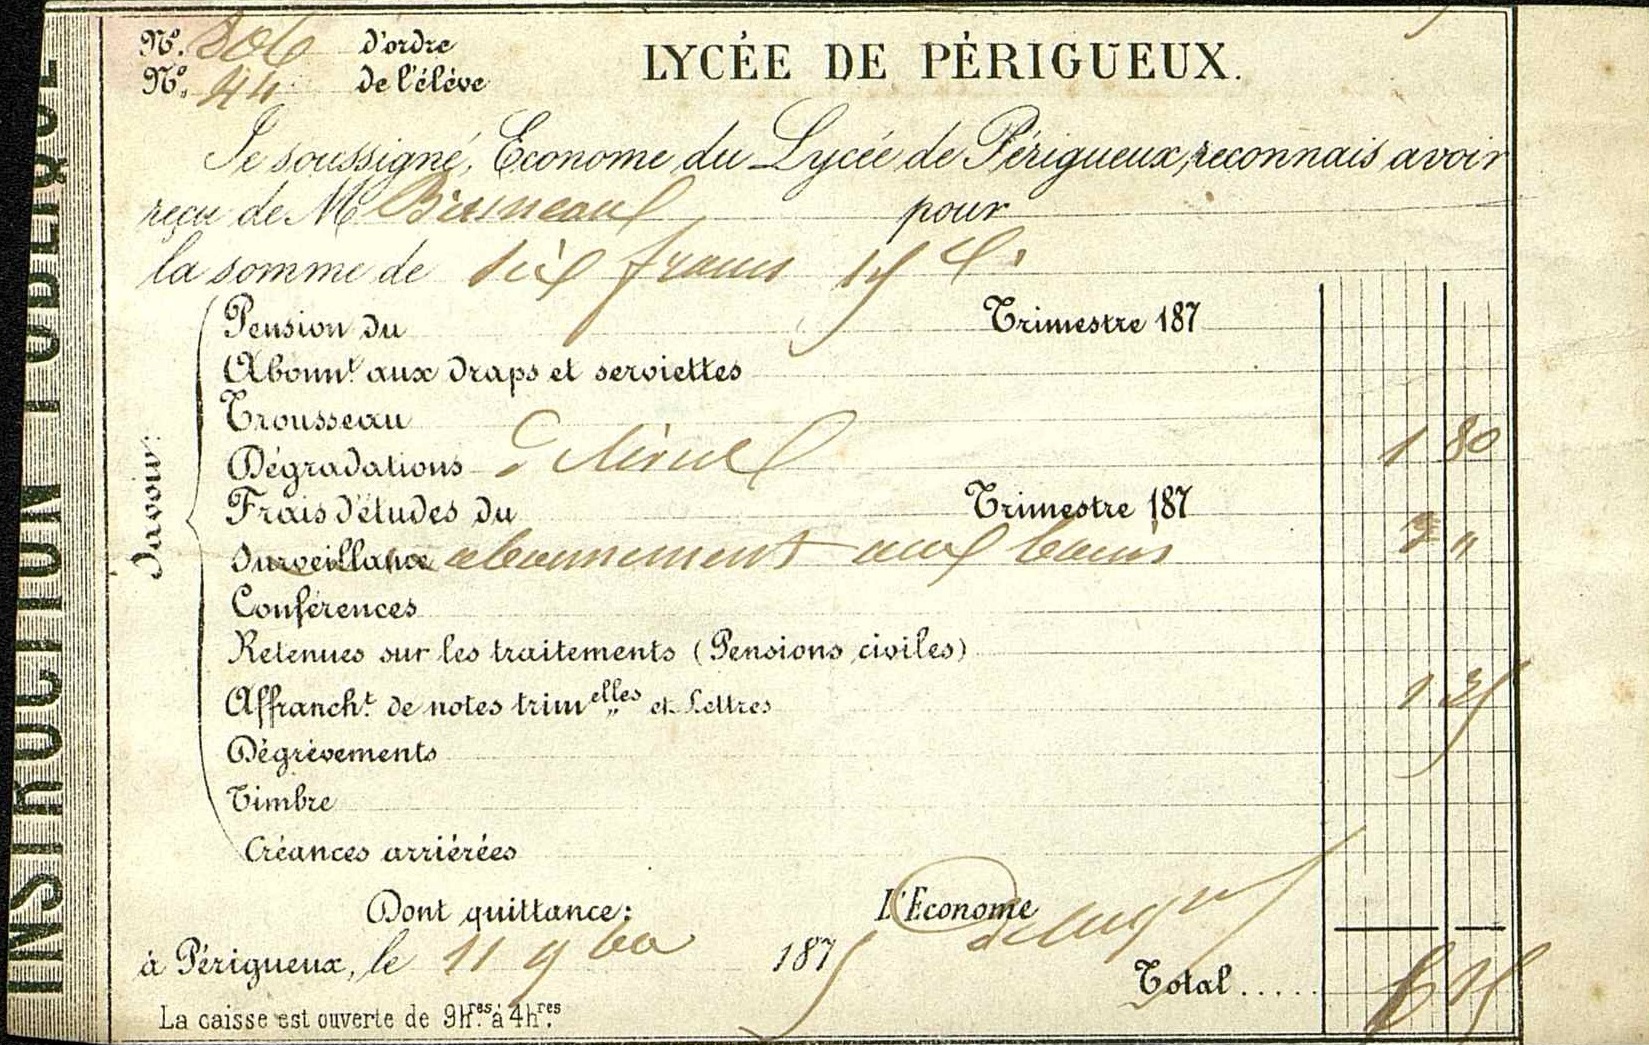 INSTRUCTION PUBLIQUE
Nº. 306 d'ordre
Nº. 44 de l'élève
LYCÉE DE PÉRIGUEUX.
Je soussigné, Econome du Lycée de Périgueux, reconnais avoir
reçu de M Bruneau pour
la somme de six francs 15 c.
Savoir:
Pension du Trimestre 187
Abonn.t aux draps et serviettes
Trousseau
Dégradations 1 80
Frais d'études du Trimestre 187
Surveillance abonnement aux bains 3 "
Conférences
Retenues sur les traitements (Pensions civiles)
Affranch.t de notes trim elles et Lettres 1 35
Dégrèvements
Timbre
Créances arriérées
Dont quittance: L'Econome
à Périgueux, le 11 9bre 1875
Total..... 6 15
La caisse est ouverte de 9hres à 4hres.